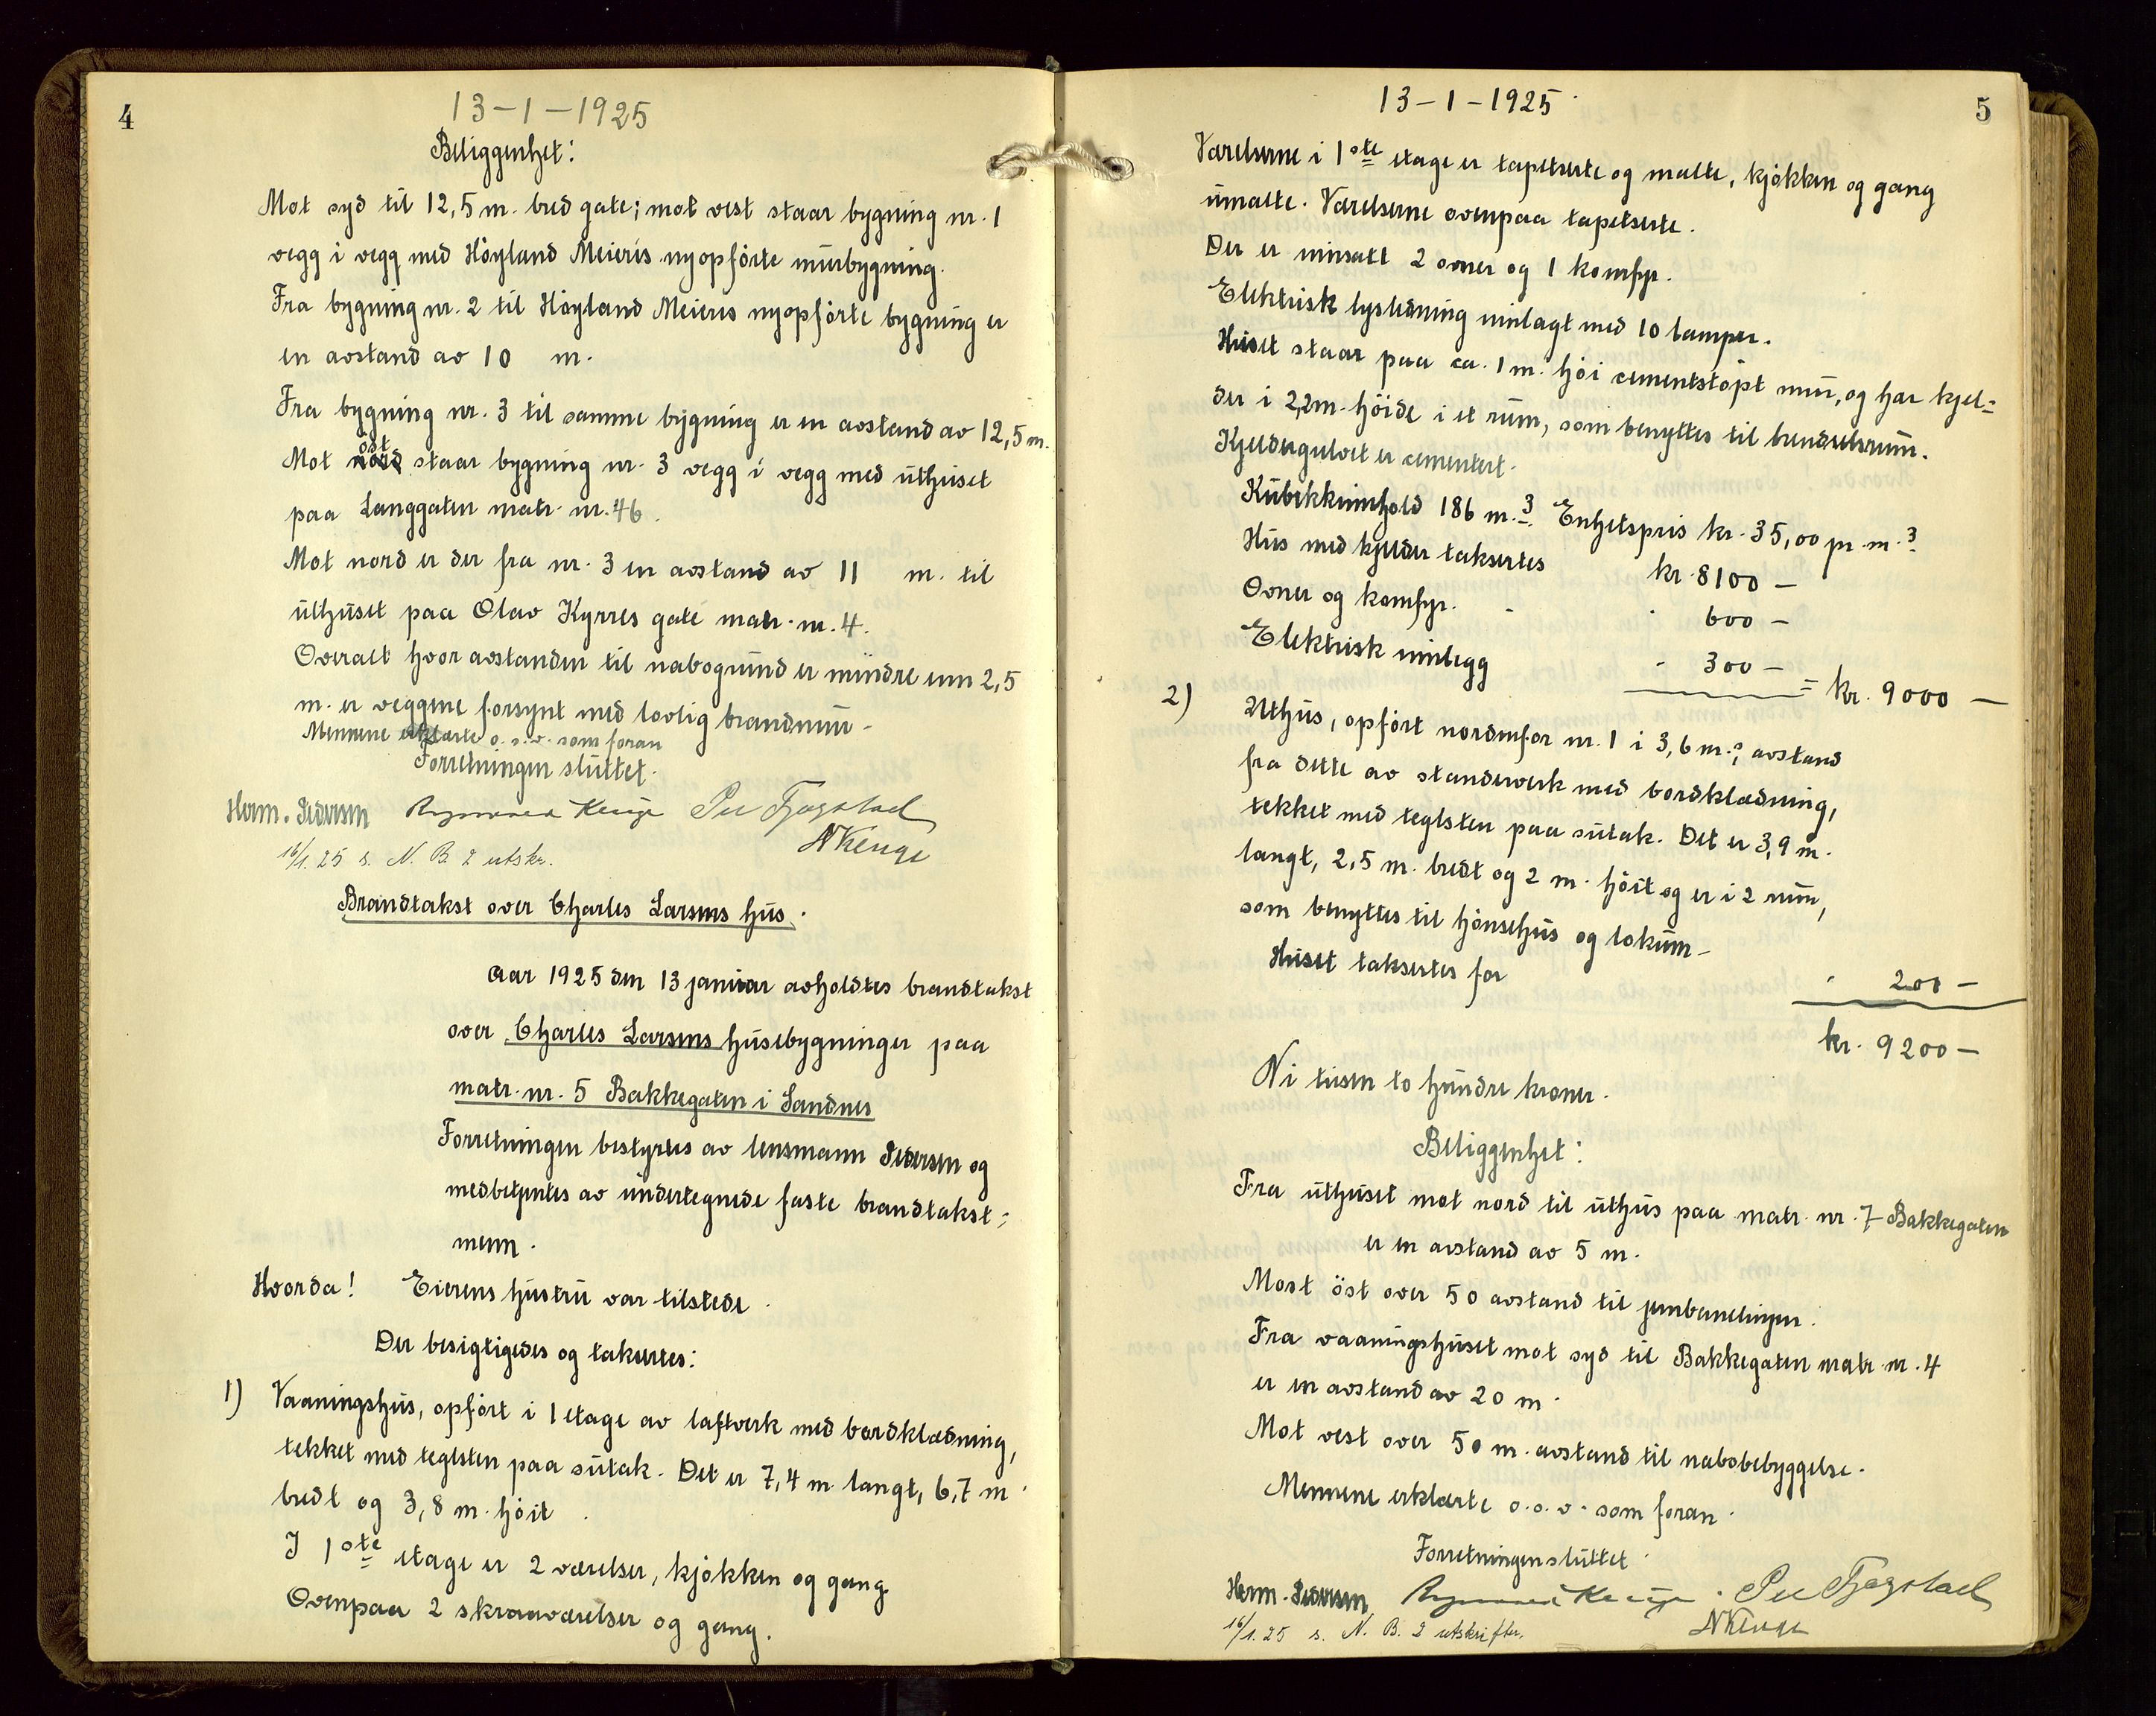 4
13-1-1925
Beliggenhet:
Mot syd til 12,5 m. bred gate; mot vest staar bygning nr. 1
vegg i vegg med Höyland Meieris nyopförte murbygning.
Fra bygning nr. 2 til Höyland Meieris nyopförte bygning er
en avstand av 10 m.
Fra bygning nr. 3 til samme bygning er en avstand av 12,5 m.
öst
Mot nord staar bygning nr. 3 vegg i vegg med uthuset
paa Langgaten matr. nr. 46.
Mot nord er der fra nr. 3 en avstand av 11 m. til
uthuset paa Olav Kyrres gate matr. nr. 4.
Overalt hvor avstanden til nabogrund er mindre enn 2,5
m. er veggene forsynt med lovlig brandmur.
Mennene erklærte o.s.v. som foran
Forretningen sluttet.
Herm. Pedersen Kenge Per Fjogstad
N Kenge
16/1.25 s. N. B. 2 utskr.
Brandtakst over Charles Larsens hus.
Aar 1925 den 13 januar avholdtes brandtakst
over Charles Larsens husebygninger paa
matr. nr. 5 Bakkegaten i Sandnes
Forretningen bestyrtes av lensmann Pedersen og
medbetjentes av undertegnede faste brandtakst=
menn.
Hvorda! Eierens hustru var tilstede.
Der besigtigedes og taksertes:
1) Vaaningshus, opfört i 1 etage av laftverk med bordklædning,
tekket med teglsten paa sutak. Det er 7,4 m. langt, 6,7 m.
bredt og 3,8 m. höit.
I 1ste etage er 2 værelser, kjökken og gang
Ovenpaa 2 skraaværelser og gang.
5
13-1-1925
Værelserne i 1ste etage er tapetserte og malte, kjökken og gang
umalte. Værelserne ovenpaa tapetserte.
Der er innsatt 2 ovner og 1 komfyr.
Elektrisk lysledning innlagt med 10 lamper.
Huset staar paa ca. 1 m. höi cementstöpt mur, og har kjel=
der i 2,2 m. höide i et rum, som benyttes til brendselsrum.
Kjeldergulvet er cementert.
Kubikkinnhold 186 m.3 Enhetspris kr. 35,00 pr. m.3
Hus med kjelder taksertes kr. 8100 -
Ovner og komfyr. " 600 -
Elektrisk innlegg " 300 - = kr. 9000 -
2) Uthus, opfört nordenfor nr. 1 i 3,6 m.s avstand
fra dette av standerverk med bordklædning,
tekket med teglsten paa sutak. Det er 3,9 m.
langt, 2,5 m. bredt og 2 m. höit og er i 2 rum,
som benyttes til hönsehus og lokum.
Huset taksertes for " 200 -
kr. 9200 -
Ni tusen to hundre kroner.
Beliggenhet:
Fra uthuset mot nord til uthus paa matr. nr. 7 Bakkegaten
er en avstand av 5 m.
Most öst over 50 avstand til jernbanelinjen.
Fra vaaningshuset mot syd til Bakkegaten matr. nr. 4
er en avstand av 20 m.
Mot vest over 50 m. avstand til nabobebyggelse.
Mennene erklærte o.s.v. som foran.
Forretningen sluttet.
Herm. Pedersen Kenge Per Fjogstad
N Kenge
16/1.25 s. N. B. 2 utskrifter.